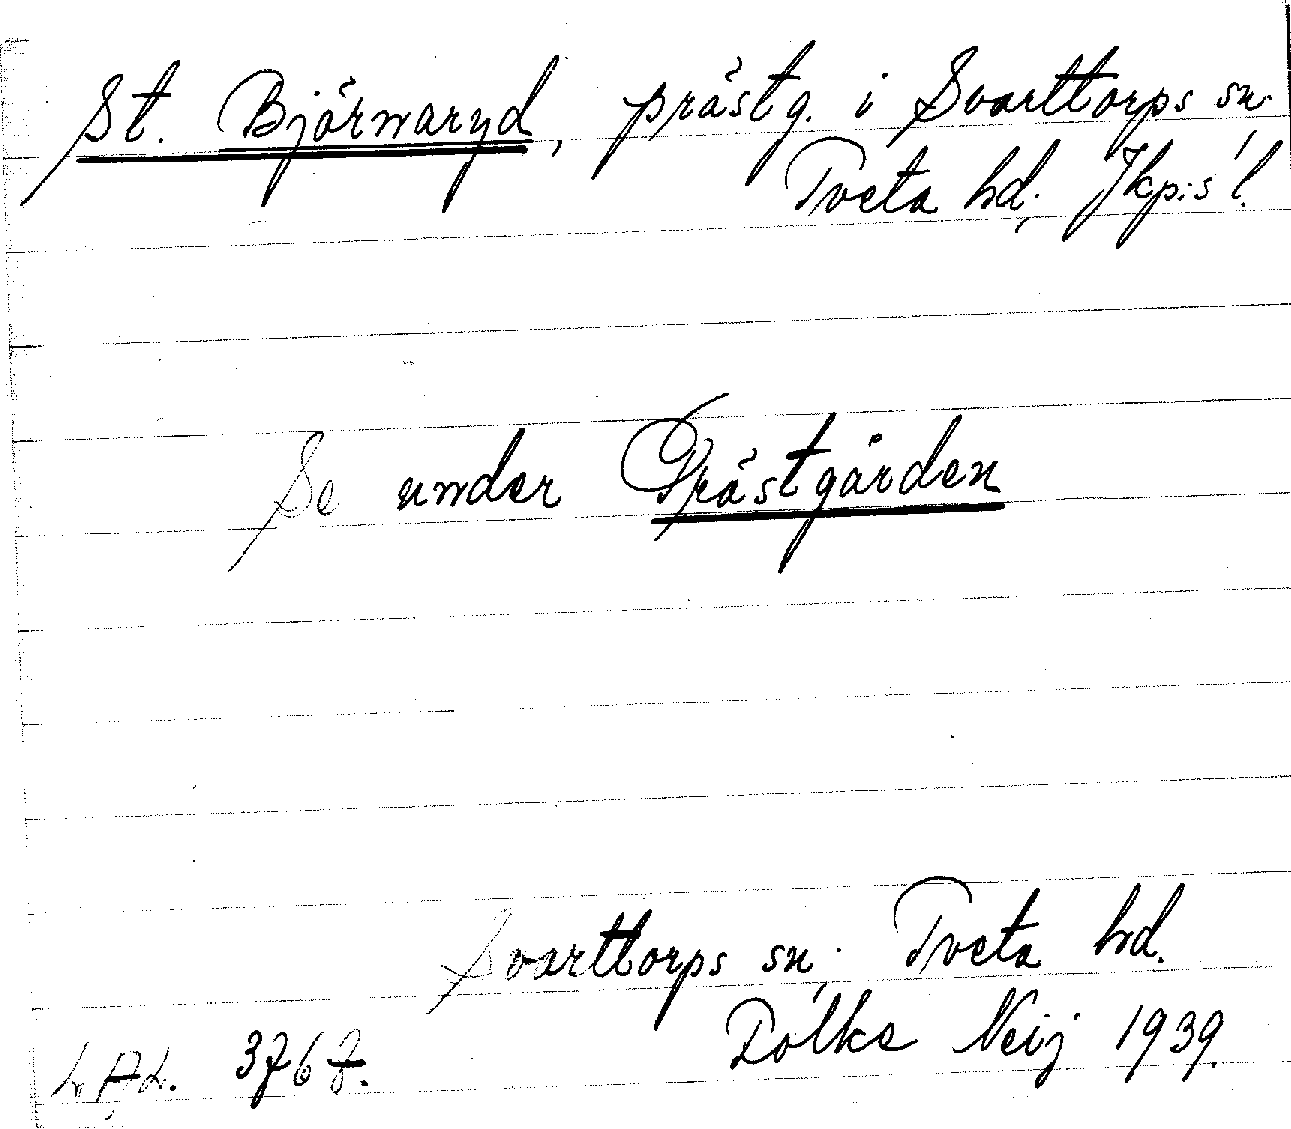 St. Björnaryd, prästg. i Svarttorps sn.
Tveta hd; Jkp:s l.
Se under Prästgården
Svarttorps sn; Tveta hd.
Folke Neij 1939.
L.A.L. 3767.